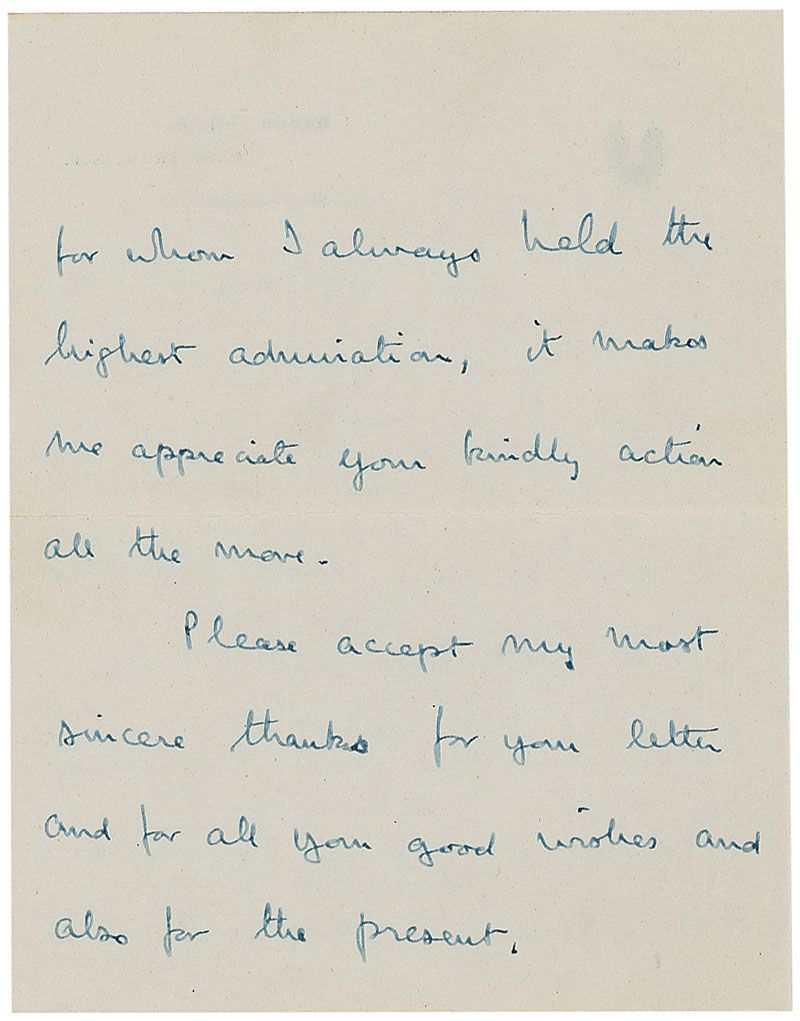 for whom I always held the
highest admiration, it makes
me appreciate your kindly action
all the more.
Please accept my most
sincere thanks for your letter
and for all your good wishes and
also for the present.